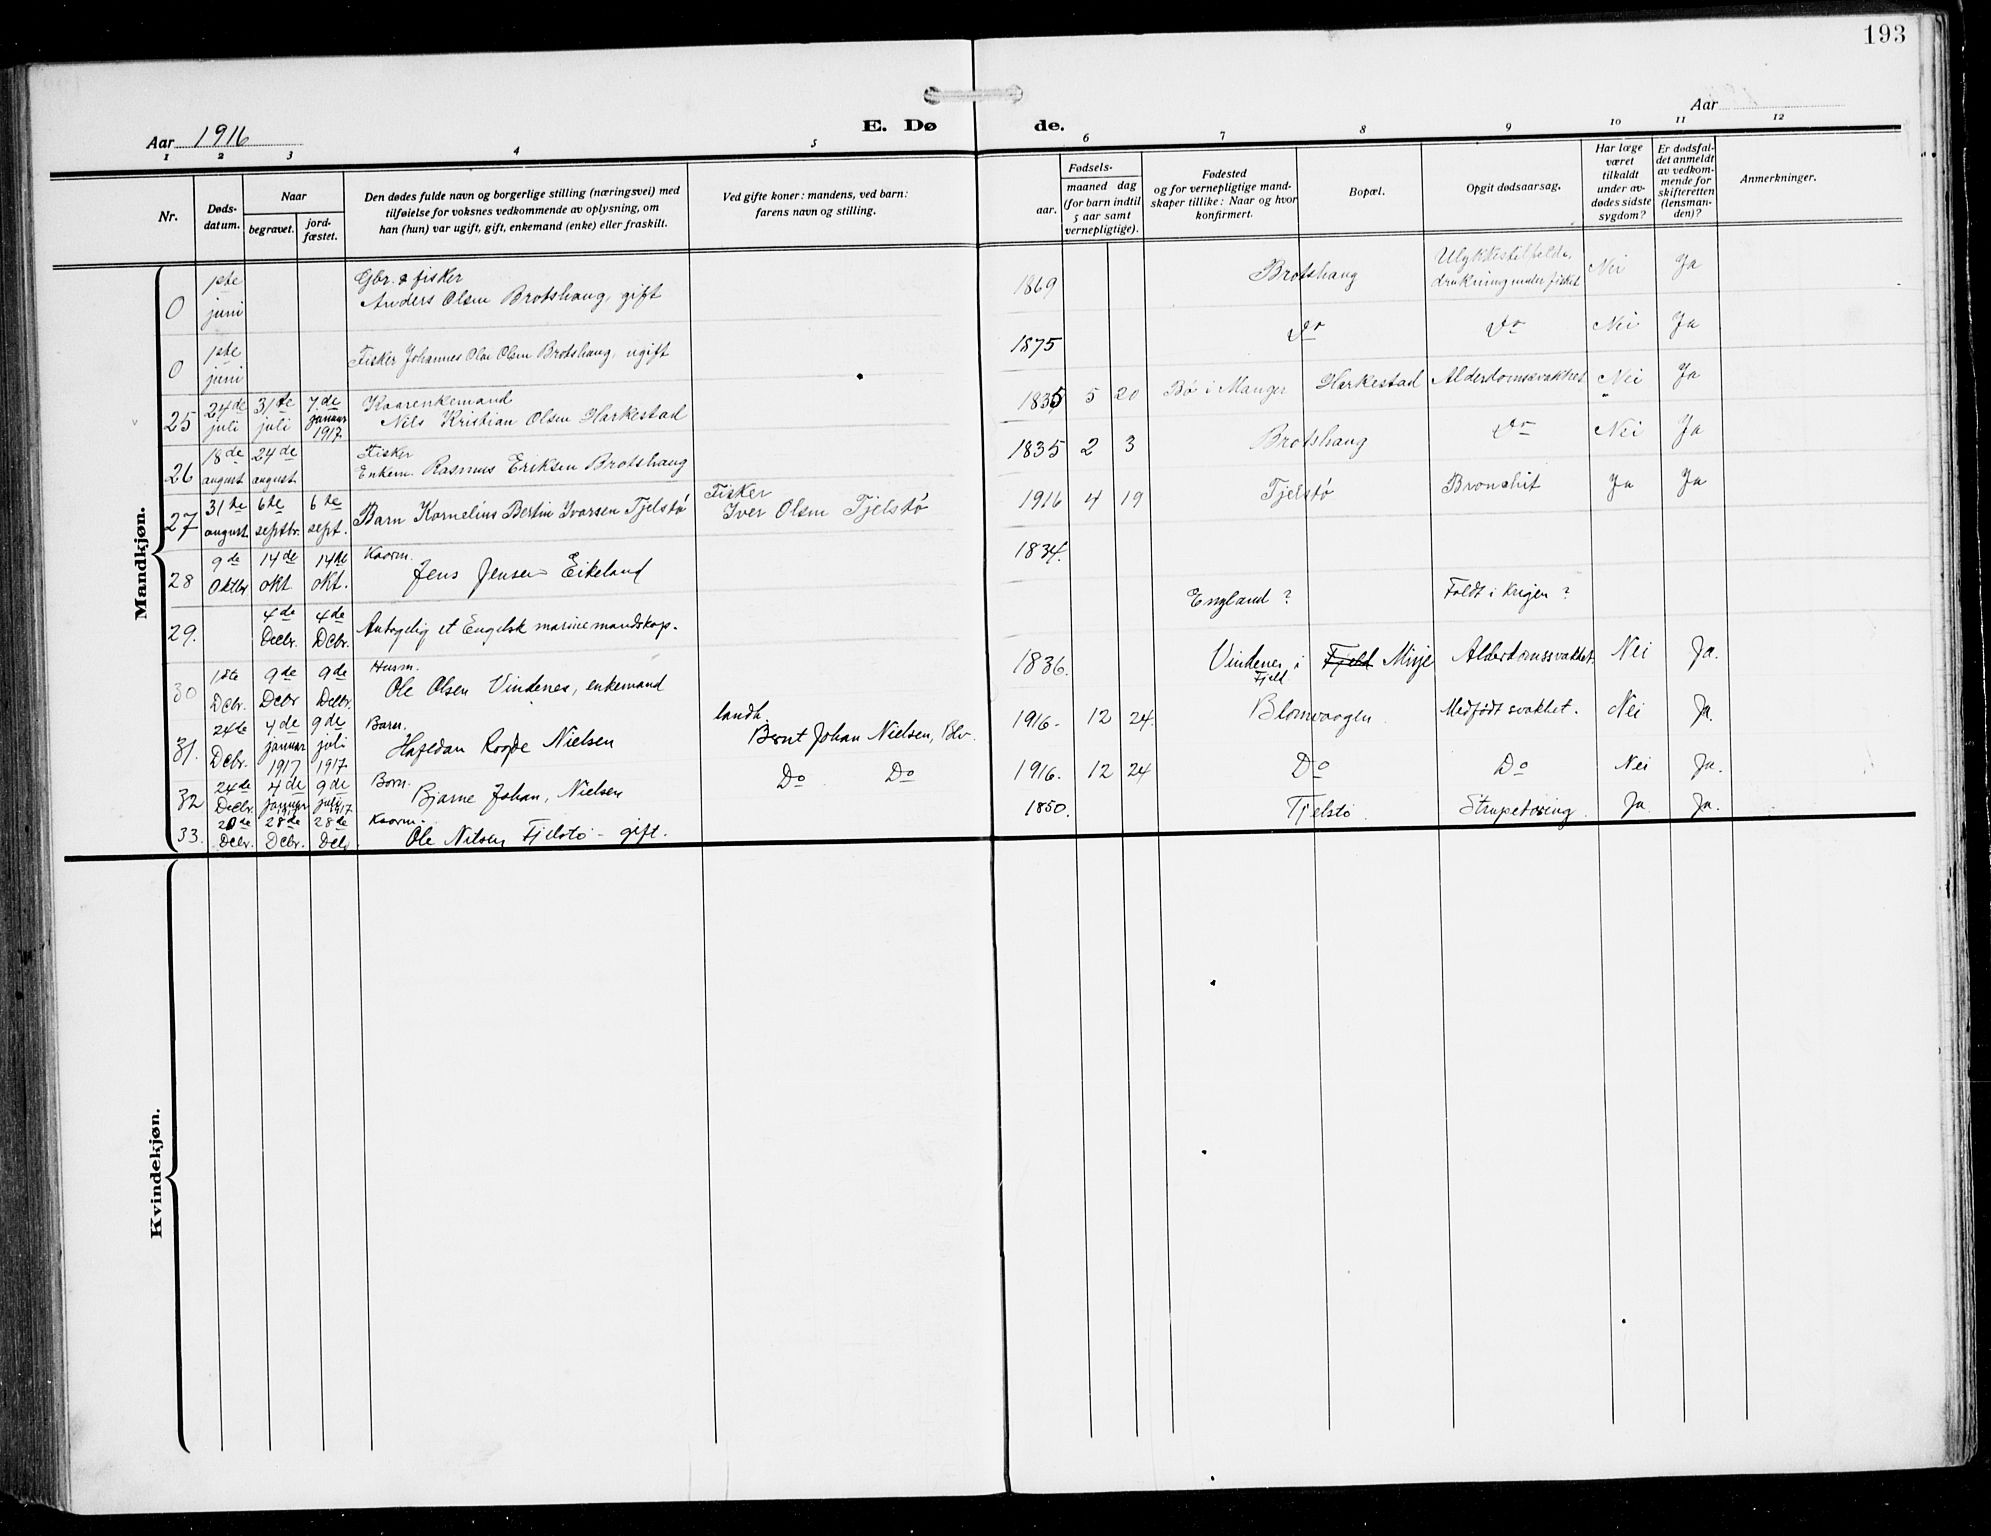 193
Aar 1916
E. Dø
de.
Aar
1 2 3 4 5 6 7 8 9 10 11 12
Nr.
Døds-
datum.
Naar
begravet.
jord-
fæstet.
Den dødes fulde navn og borgerlige stilling (næringsvei) med
tilføielse for voksnes vedkommende av oplysning, om
han (hun) var ugift, gift, enkemand (enke) eller fraskilt.
Ved gifte koner: mandens, ved barn:
farens navn og stilling.
Fødsels-
aar.
maaned dag
(for barn indtil
5 aar samt
vernepligtige).
Fødested
og for vernepligtige mand-
skaper tillike: Naar og hvor
konfirmert.
Bopæl.
Opgit dødsaarsag.
Har læge
været
tilkaldt
under av-
dødes sidste
sygdom?
Er dødsfal-
det anmeldt
av vedkom-
mende for
skifteretten
(lensman-
den)?
Anmerkninger.
Mandkjøn.
0 1ste juni
Gbr. & fisker
Anders Olsen Brotshaug, gift
1869 Brotshaug
Ulykkestilfelde,
drukning under fisket Nei Ja
0 1ste juni
Fisker Johannes Olai Olsen Brotshaug, ugift
1875 Do Do Nei Ja
25 24de juli 31te juli 7.de januar 1917
Kaarenkemand
Nils Kristian Olsen Harkestad
1835 5 20 Bø i Manger Harkestad Alderdomssvakhet Nei Ja
26 18de august 24de august
Fisker
Enkem. Rasmus Eriksen Brotshaug
1835 2 3 Brotshaug Do Nei Ja
27 31te august. 6te septbr. 6te sept.
Barn Kornelius Bertin Ivarsen Tjelstø
Fisker
Iver Olsen Tjelstø
1916 4 19 Tjelstø Bronchit Ja Ja
28 9de Oktbr 14de okt 14de okt.
Kaarm.
Jens Jensen Eikeland
1834.
29. 4de Decbr. 4de Dcbr.
Antagelig et Engelsk marinemandskap.
England? Faldt i krigen?
30 1ste Dcbr. 9de Dcbr 9de Decbr.
Husm.
Ole Olsen Vindenes, enkemand
1836. Vindenes i Fjeld Fjeld Misje Alderdomssvakhet. Nei Ja.
31. 24de Dcbr. 4.de januar 1917 9de juli 1917
Barn.
Nielsen
landh.
Bernt Johan Nielsen, Blv.
1916. 12 24. Blomvaagen. Medfødt svakhet. Nei Ja.
32 24de Decbr. 4de januar 1917 9de juli 1917
Barn.
Bjarne Johan, Nielsen
Do Do
1916. 12 24 Do Do Nei Ja.
33. 20de Decbr. 28de Dcbr. 28de Dcbr.
Kaarm.
Ole Nilsen Tjelstø - gift.
1850. Tjelstø. Strupetæring. Ja. Ja.
Kvindekjøn.